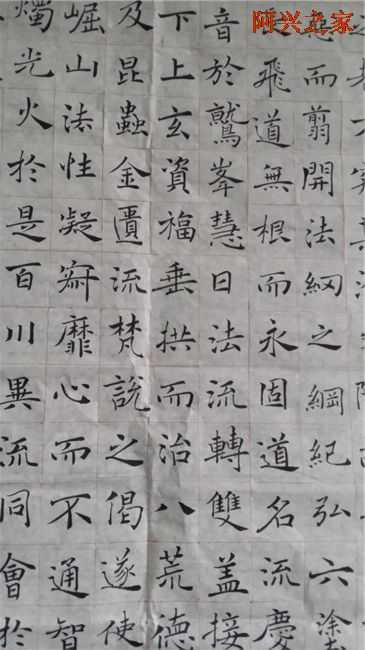 阿兴之家
而翦開法網之綱紀弘六塗
飛道無根而永固道名流慶
音於鷲峯慧日法流轉雙盖接
下上玄資福垂拱而治八荒德
及昆蟲金匱流梵說之偈遂使
崛山法性凝寂靡心而不通智
燭光火於是百川異流同會於